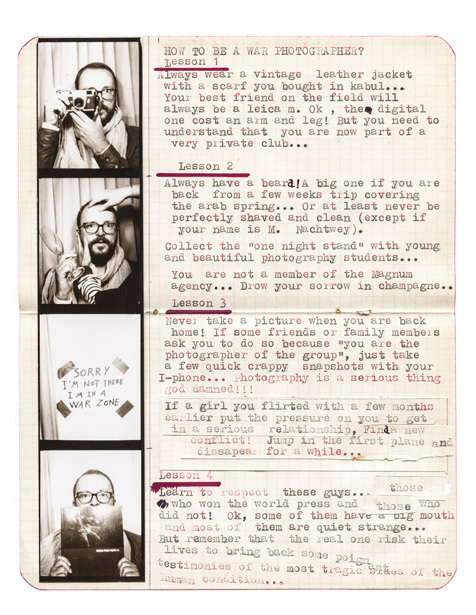 HOW TO BE A WAR PHOTOGRAPHER?
Lesson 1
Always wear a vintage leather jacket
with a scarf you bought in kabul...
Your best friend on the field will
always be a leica m. Ok , the digital
one cost an arm and leg! But you need to
understand that you are now part of a
very private club...
Lesson 2
Always have a beard!A big one if you are
back from a few weeks trip covering
the arab spring... Or at least never be
perfectly shaved and clean (except if
your name is M. Nachtwey).
Collect the "one night stand" with young
and beautiful photography students...
You are not a member of the Magnum
agency... Drow your sorrow in champagne..
Lesson 3
Never take a picture when you are back
home! If some friends or family members
ask you to do so because "you are the
photographer of the group", just take
a few quick crappy snapshots with your
I-phone... Photography is a serious thing
god damned!!!
SORRY
I'M NOT THERE
I'M IN A
WAR ZONE
If a girl you flirted with a few months
earlier put the pressure on you to get
in a serious relationship, Find a new
conflict! Jump in the first plane and
dissapear for a while...
Lesson 4
Learn to respect these guys... those
who won the world press and those who
did not! Ok, some of them have a big mouth
and most of them are quiet strange...
But remember that the real one risk their
lives to bring back some poignant
testimonies of the most tragic sides of the
human condition...